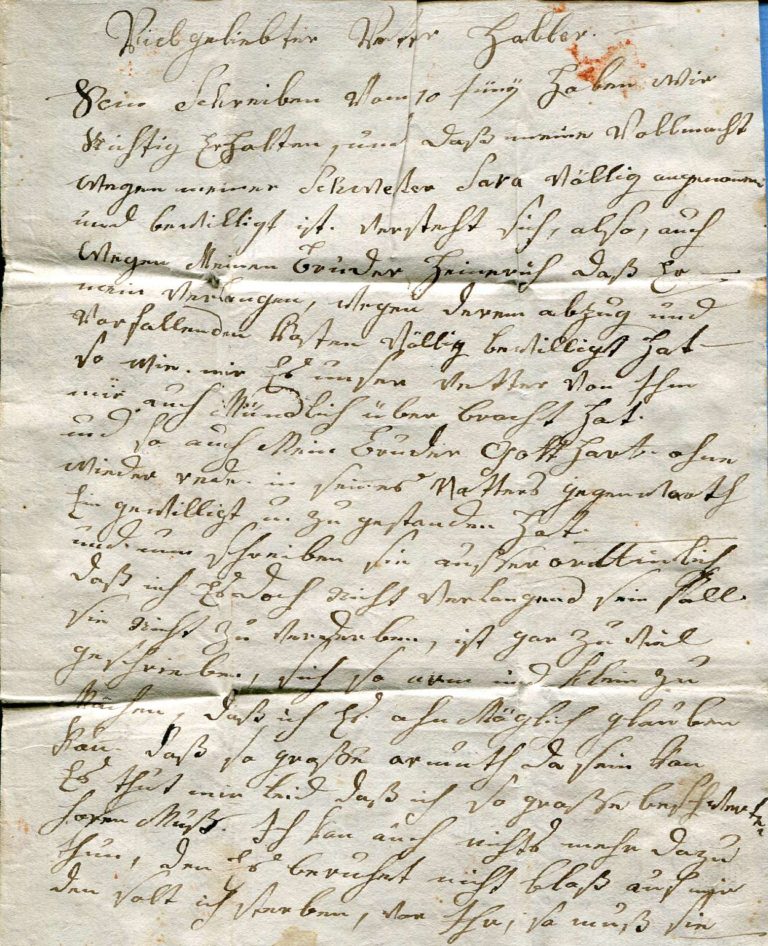 Vielgeliebter Vetter Haller.
Dein Schreiben Vom 10 Juny Haben wir
Richtig Erhalten, und daß meine Vollmacht
wegen meiner Schwester Sara Völlig angenommen
und bewilligt ist. versteht sich, also, auch
wegen Meinen Bruder Heinrich daß Er
mein Verlangen, wegen derem abzug und
Vorfallenden Kosten Völlig bewilligt hat
so wie mir Es unser Vetter Von Ihm
mir auch Mündlich über bracht hat.
und so auch Mein Bruder Gotthart ohne
wieder rede in seines Vatters gegenwarth
Ein gewilligt u. zu gestanden hat.
und nun schreiben sie ausserordtlich
daß ich Es doch nicht Verlangend sein soll
sie nicht zu Verderben, ist gar zu viel
geschrieben, sich so arm und klein zu
Machen, daß ich Es ohn Möglich glauben
kan. daß so große armuth da sein kan
Es thut mir leid daß ich so große beschwerten
hören Muß. Ich kan auch nichts mehr dazu
thun, den Es beruhet nicht bloß auf mir
den solt ich sterben, vor Ihr, so muß sie